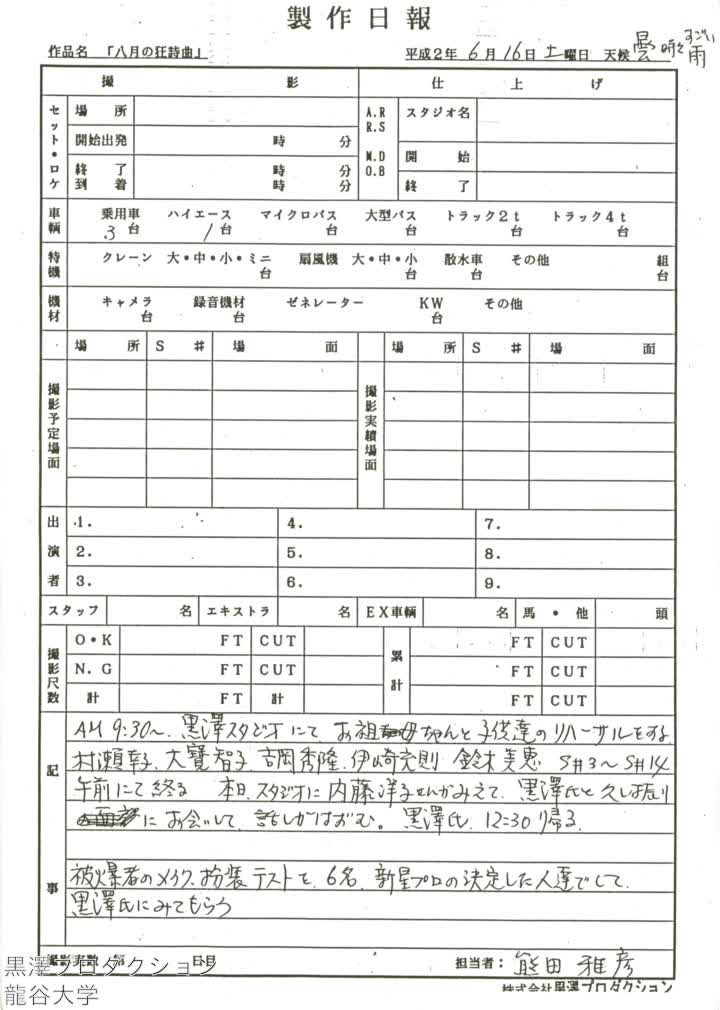 製作日報
作品名 「八月の狂詩曲」 平成2年 6月16日 土曜日 天候 曇 時々 すごい雨
撮影 仕上げ
セット・ロケ 場所 A.R R.S スタジオ名
開始出発 時 分
終了 時 分 W.D O.B 開始
到着 時 分 終了
車輌 乗用車 ハイエース マイクロバス 大型バス トラック2t トラック4t
3台 1台 台 台 台 台
特機 クレーン 大・中・小・ミニ 扇風機 大・中・小 散水車 その他 組
台 台 台 台
機材 キャメラ 録音機材 ゼネレーター KW その他
台 台 台
場所 S # 場面 場所 S # 場面
撮影予定場面 撮影実績場面
出演者 1. 4. 7.
2. 5. 8.
3. 6. 9.
スタッフ 名 エキストラ 名 EX車輌 名 馬・他 頭
撮影尺数 O・K FT CUT 累計 FT CUT
N.G FT CUT FT CUT
計 FT 計 FT CUT
記事
AM 9:30〜 黒澤スタジオにて お祖母ちゃんと子供達のリハーサルをする
村瀬幸子、大寳智子、吉岡秀隆、伊崎充則 鈴木美恵 S#3〜S#14
午前にて終る 本日、スタジオに内藤洋子さんがみえて、黒澤氏と久し振り
にお会いして、話しがはずむ。黒澤氏、12:30帰る
被爆者のメイク、扮装テストを、6名、新星プロの決定した人達でして、
黒澤氏にみてもらう
撮影実数 第 日目 担当者: 熊田 雅彦
株式会社黒澤プロダクション
黒澤プロダクション
龍谷大学